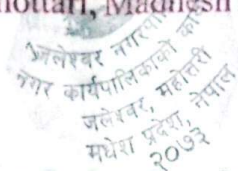 hottari, Madhesh
जलेश्वर नगरपा
नगर कार्यपालिकाको का
जलेश्वर, महोत्तरी
मधेश प्रदेश, नेपाल
२०७३